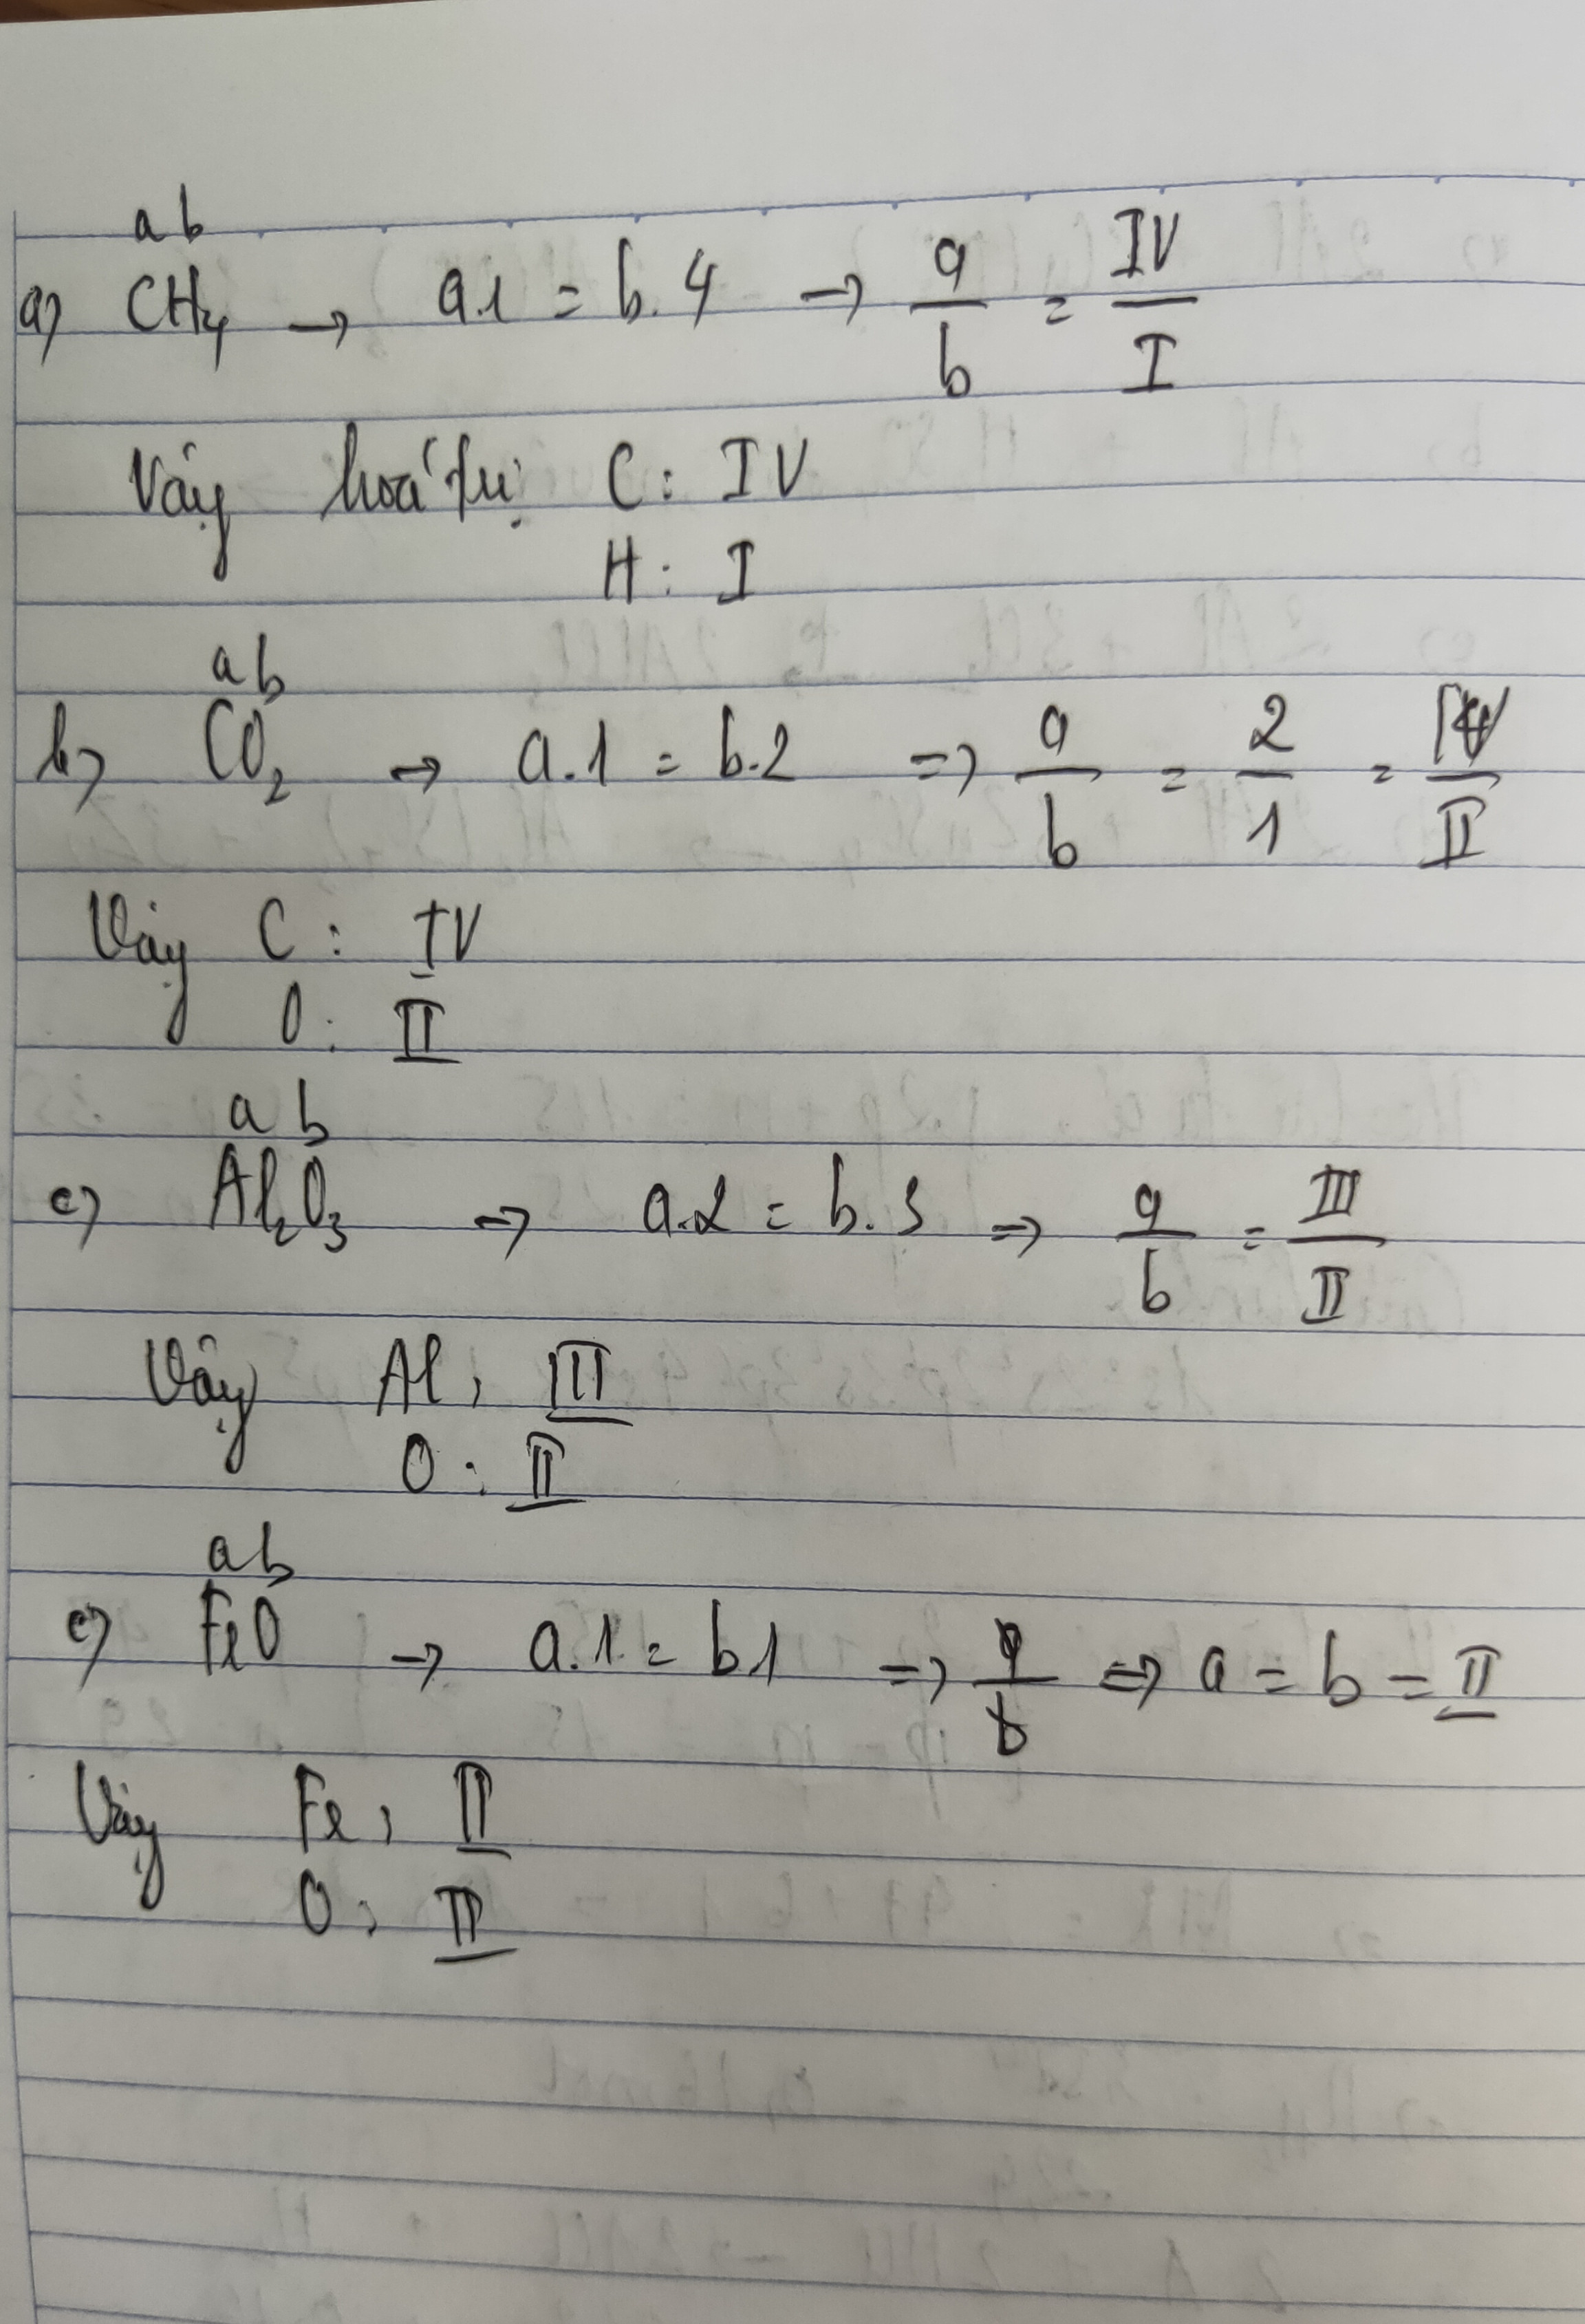 a b
a) CH₄ → a.1 = b.4 → a/b = IV/I
Vậy hoá trị C: IV
H: I
a b
b) CO₂ → a.1 = b.2 => a/b = 2/1 = IV/II
Vậy C: IV
O: II
a b
c) Al₂O₃ → a.2 = b.3 => a/b = III/II
Vậy Al: III
O: II
a b
c) FeO → a.1 = b1 => a/b => a = b = II
Vậy Fe: II
O: II